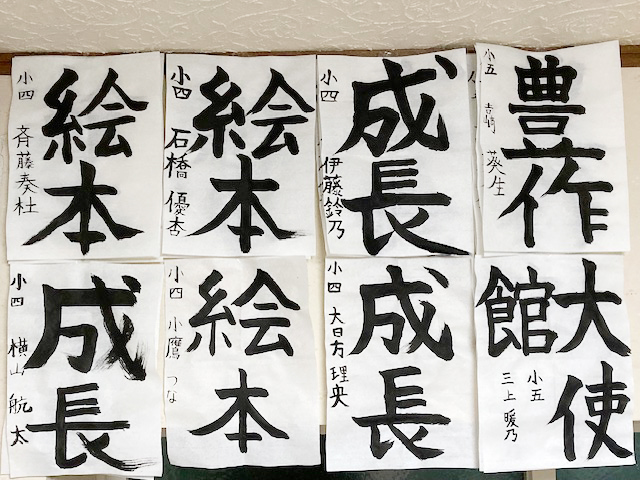 絵本
小四 斉藤奏杜
絵本
小四 石橋優杏
成長
小四 伊藤鈴乃
豊作
小五 吉崎葵生
成長
小四 横山航太
絵本
小四 小鷹つな
成長
小四 大日方理央
大使館
小五 三上暖乃